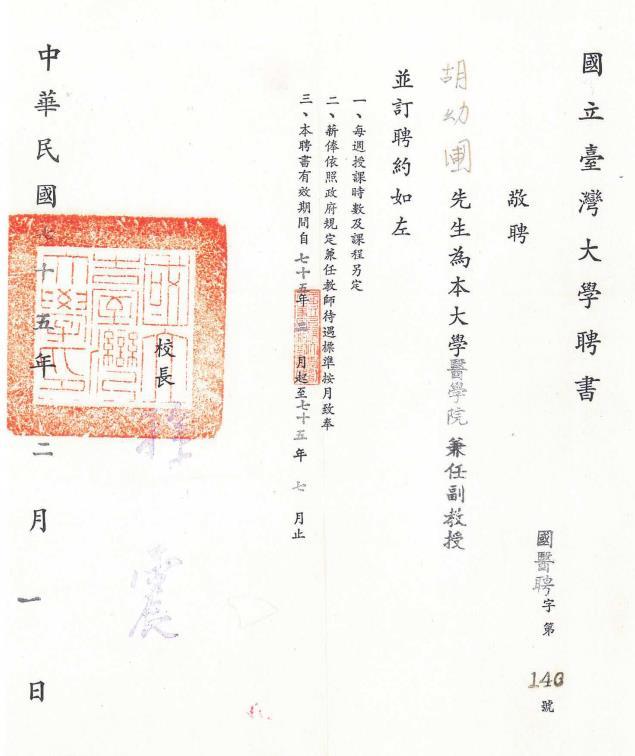 國立臺灣大學聘書
國醫聘字第140號
敬聘
胡幼圃先生為本大學醫學院兼任副教授
並訂聘約如左
一、每週授課時數及課程另定
二、薪俸依照政府規定兼任教師待遇標準按月致奉
三、本聘書有效期間自七十五年二月起至七十五年七月止
校長
孫震
中華民國七十五年二月一日